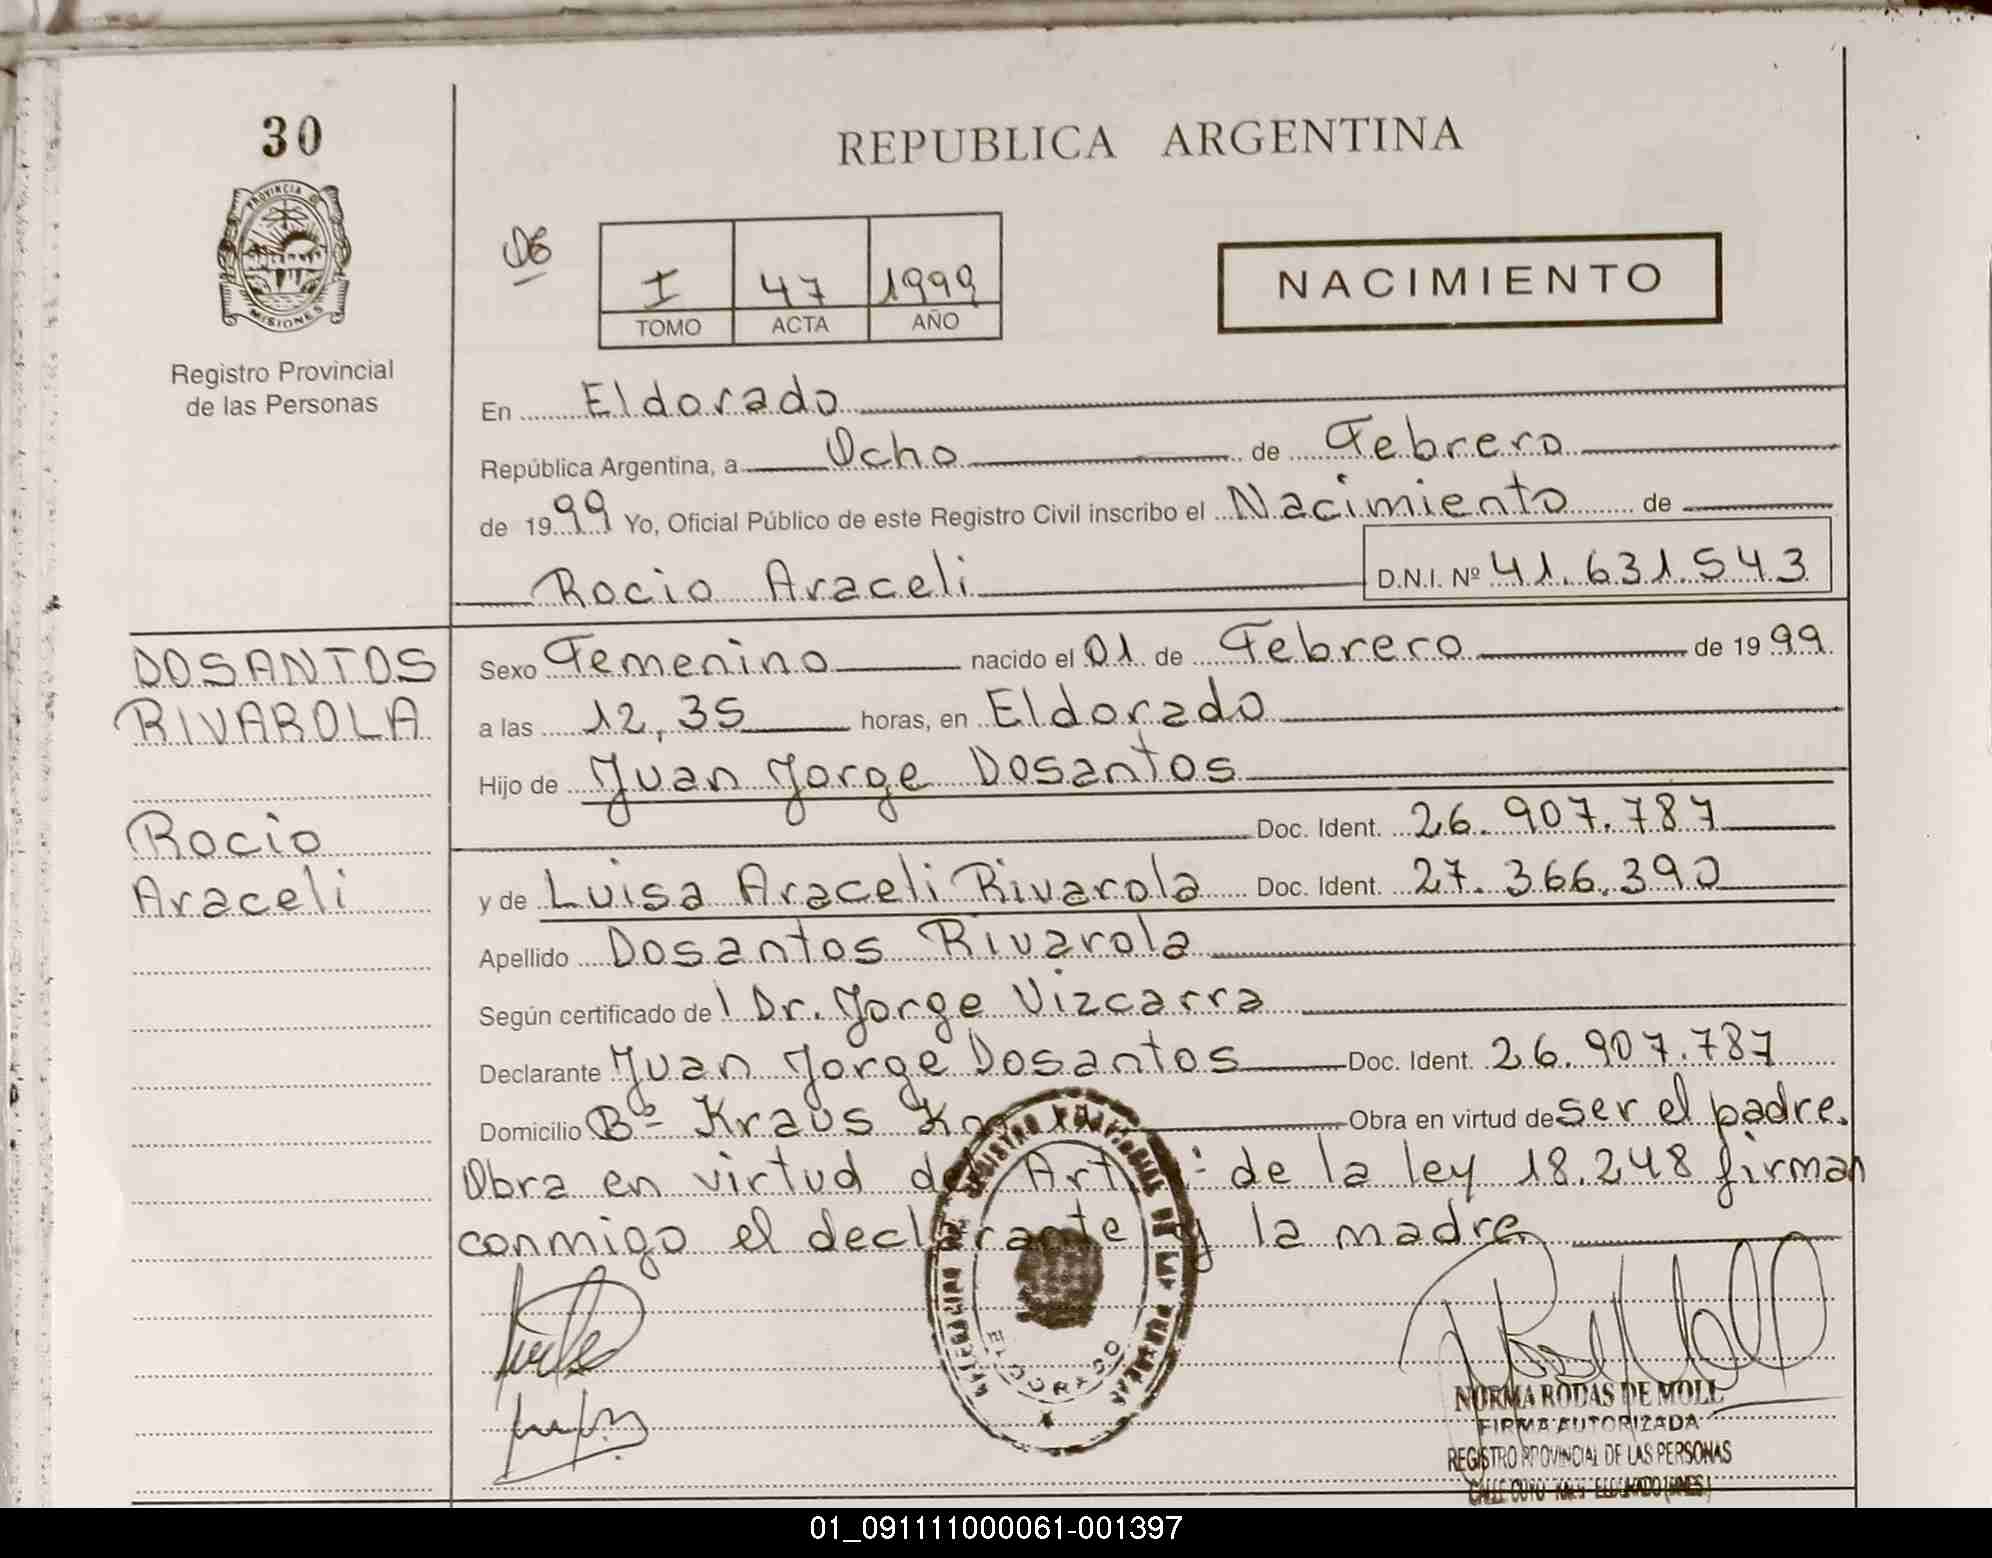 30
REPUBLICA ARGENTINA
PROVINCIA DE
MISIONES
Registro Provincial
de las Personas
06
I 47 1999
TOMO ACTA AÑO
NACIMIENTO
En Eldorado
República Argentina, a Ocho de Febrero
de 1999 Yo, Oficial Público de este Registro Civil inscribo el Nacimiento de
Rocio Araceli D.N.I. Nº 41.631.543
DOSANTOS
RIVAROLA
Rocio
Araceli
Sexo Femenino nacido el 01 de Febrero de 1999
a las 12,35 horas, en Eldorado
Hijo de Juan Jorge Dosantos
Doc. Ident. 26.907.787
y de Luisa Araceli Rivarola Doc. Ident. 27.366.390
Apellido Dosantos Rivarola
Según certificado del Dr. Jorge Vizcarra
Declarante Juan Jorge Dosantos Doc. Ident. 26.907.787
Domicilio Bº Kraus Obra en virtud de ser el padre.
Obra en virtud del Art de la ley 18.248 firman
conmigo el declarante y la madre
REGISTRO PROVINCIAL DE LAS PERSONAS
ELDORADO
NORMA RODAS DE MOLL
FIRMA AUTORIZADA
REGISTRO PROVINCIAL DE LAS PERSONAS
01_091111000061-001397